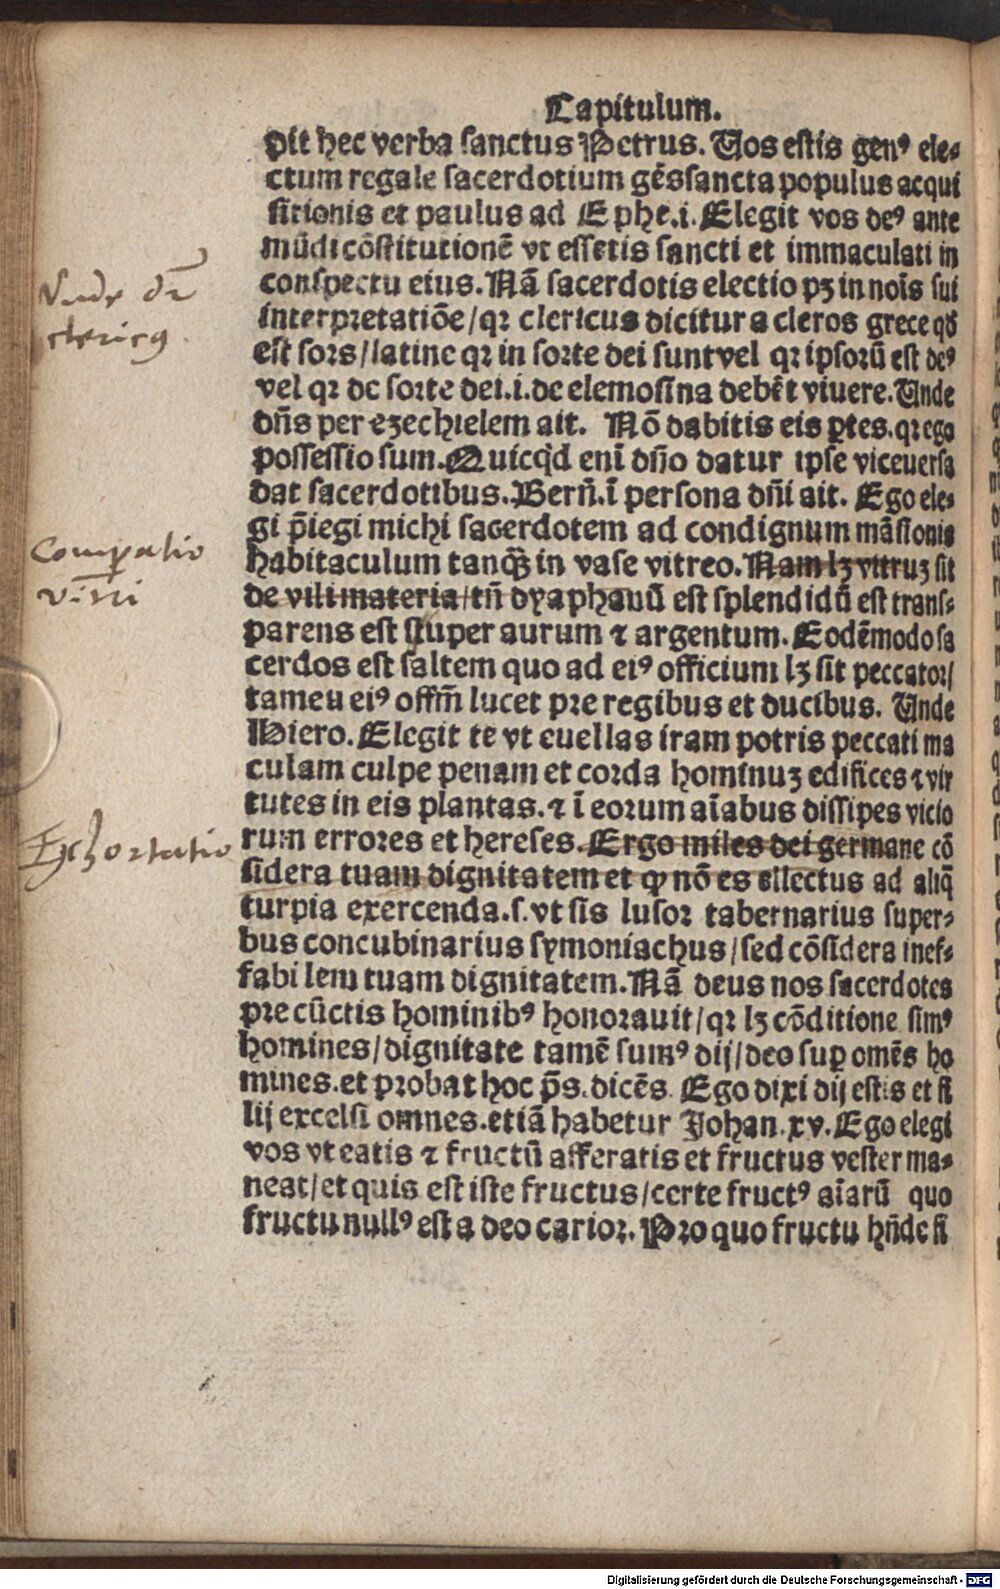 Capitulum.
pit hec verba sanctus Petrus. Uos estis genꝰ ele⸗
ctum regale sacerdotium gēs sancta populus acqui
sitionis et paulus ad Ephe.i. Elegit vos deꝰ ante
mūdi cōstitutionē vt essetis sancti et immaculati in
conspectu eius. Nā sacerdotis electio pꝫ in noīs sui
interpretatiōe/qꝛ clericus dicitur a cleros grece qđ
est sors/latine qꝛ in sorte dei sunt vel qꝛ ipsorū est deꝰ
vel qꝛ de sorte dei.i.de elemosina debēt viuere. Unde
Unde dr̄
clericꝰ
dn̄s per ezechielem ait. Nō dabitis eis ꝑtes.qꝛ ego
possessio sum. Quicq̇d enī dn̄o datur ipse viceuersa
dat sacerdotibus. Bern̄.ī persona dn̄i ait. Ego ele⸗
gi p̄iegi michi sacerdotem ad condignum māsionis
habitaculum tanq̄ꝫ in vase vitreo. Nam lꝫ vitruꝫ sit
Compatio
vitri
de vili materia/tn̄ dyaphanū est splendidū est trans⸗
parens est super aurum ⁊ argentum. Eodēmodo sa
cerdos est saltem quo ad eiꝰ officium lꝫ sit peccator/
tameu eiꝰ offm̄ lucet pre regibus et ducibus. Unde
Hiero. Elegit te vt euellas iram potris peccati ma
culam culpe penam et corda hominuꝫ edifices ⁊ vir
tutes in eis plantas.⁊ ī eorum aīabus dissipes vicio
rum errores et hereses. Ergo miles dei germane cō
Exhortatio
sidera tuam dignitatem et ꝙ nō es ellectus ad aliq̄
turpia exercenda.s.vt sis lusor tabernarius super⸗
bus concubinarius symoniachus/sed cōsidera inef⸗
fabi lem tuam dignitatem. Nā deus nos sacerdotes
pre cūctis hominibꝰ honorauit/qꝛ lꝫ cōditione simꝰ
homines/dignitate tamē sumꝰ dij/deo suꝑ omēs ho
mines.et probat hoc p̄s.dicēs. Ego dixi dij estis et fi
lij excelsi omnes.etiā habetur Johan.xv. Ego elegi
vos vt eatis ⁊ fructū afferatis et fructus vester ma⸗
neat/et quis est iste fructus/certe fructꝰ aīarū quo
fructu nullꝰ est a deo carior. Pro quo fructu hn̄de si
Digitalisierung gefördert durch die Deutsche Forschungsgemeinschaft - DFG